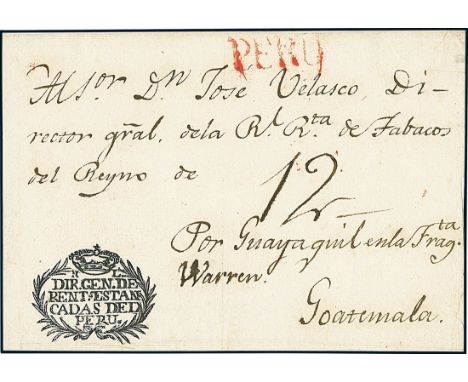 PERU
Al Sor. Dn. Jose Velasco, Di-
rector gral. dela Rl. Rta de Tabacos
del Reyno de
12
Por Guayaquil enla Fragta
Warren.
Goatemala.
N L
DIR.GEN.DE
RENTs.ESTAN
CADAS DEL
PERU.